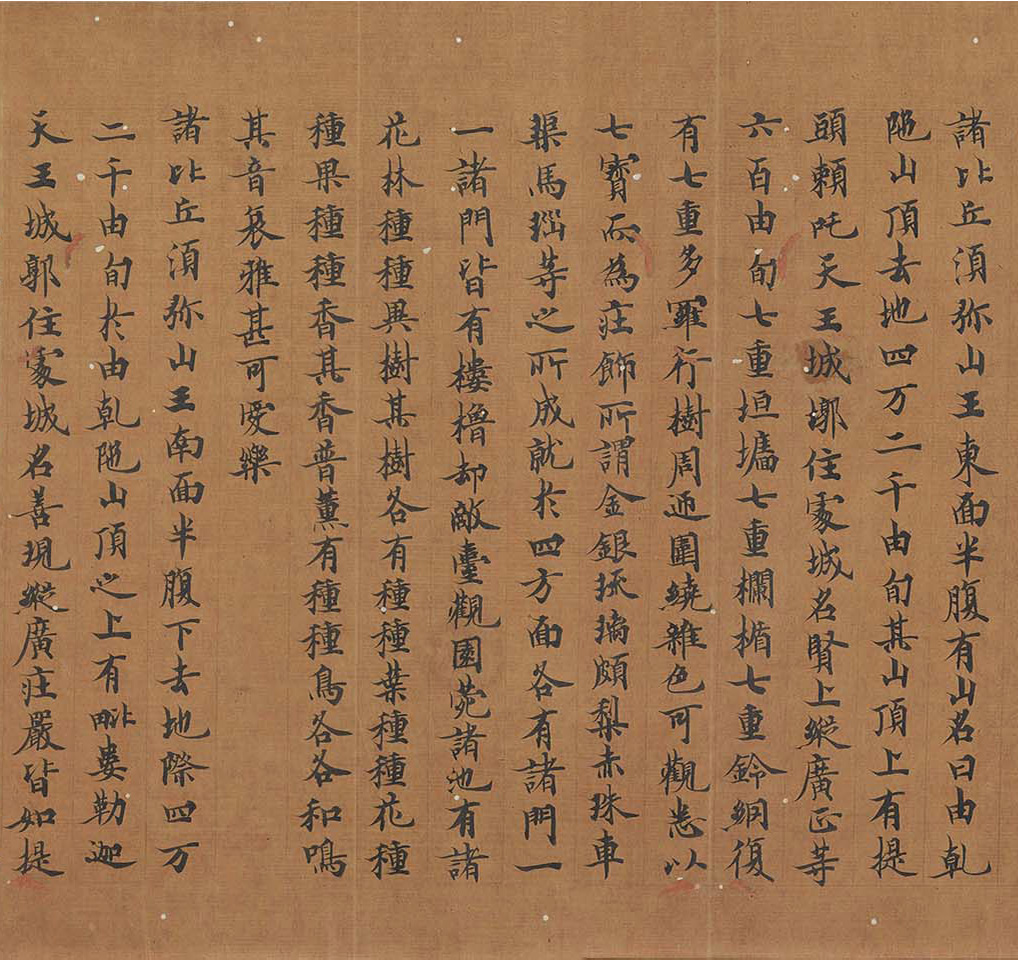 諸比丘須弥山王東面半腹有山名曰由乹
陁山頂去地四万二千由旬其山頂上有提
頭頼吒天王城墎住處城名賢上縱廣正等
六百由旬七重垣墻七重欄楯七重鈴網復
有七重多羅行樹周迊圍繞雜色可觀悉以
七寶而為莊飾所謂金銀琉璃頗梨赤珠車
𤦲馬瑙等之所成就於四方面各有諸門一
一諸門皆有樓櫓却敵臺觀園苑諸池有諸
花林種種異樹其樹各有種種葉種種花種
種果種種香其香普薰有種種鳥各各和鳴
其音哀雅甚可愛樂
諸比丘須弥山王南面半腹下去地際四万
二千由旬於由乹陁山頂之上有毗婁勒迦
天王城郭住處城名善現縱廣莊嚴皆如提